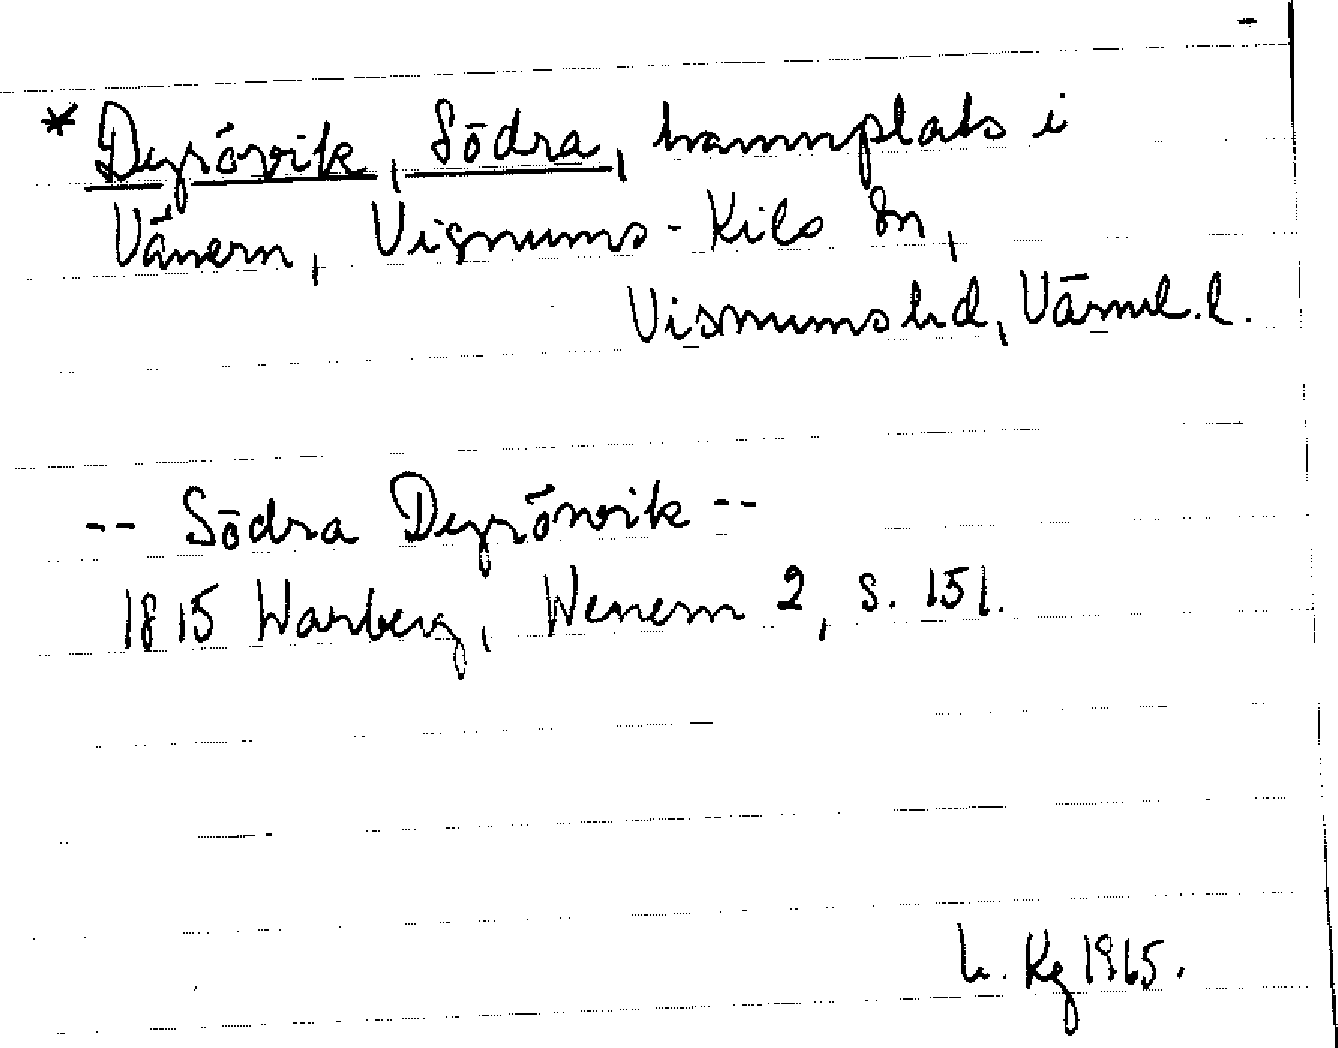 * Deyrövik, Södra, hamnplats i
Vänern, Visnums-Kils sn,
Visnums hd, Värml. l.
-- Södra Deyrönvik --
1815 Warberg, Wenern 2, s. 151.
L. Kg 1965.